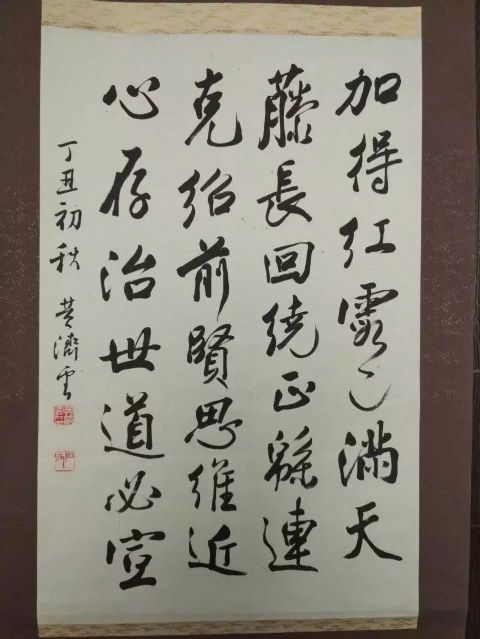 加得紅霞已滿天
藤長回繞正緜連
克紹前賢思維近
心存治世道必宣
丁丑初秋 黄濟雲